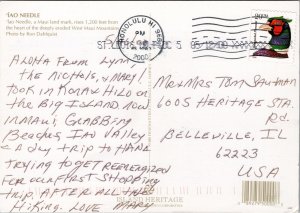 'IAO NEEDLE
'Iao Needle, a Maui land mark, rises 1,200 feet from
the heart of the deeply-eroded West Maui Mountains.
Photo by Ron Dahlquist
HONOLULU HI
PM
2000
ALOHA FROM LYNN
THE NICHOLS, & MARY!
TOOK IN KONA & HILO ON
THE BIG ISLAND, NOW
IN MAUI GRABBING
BEACHES IAO VALLEY
& A DAY TRIP TO HANA
TRYING TO GET REENERGIZED
FOR OUR FIRST SHOPPING
TRIP AFTER ALL THE
HIKING. LOVE MARY
MR & MRS TOM SAUTMAN
600 S HERITAGE STA.
Rd.
BELLEVILLE, IL
62223
USA
ISLAND HERITAGE